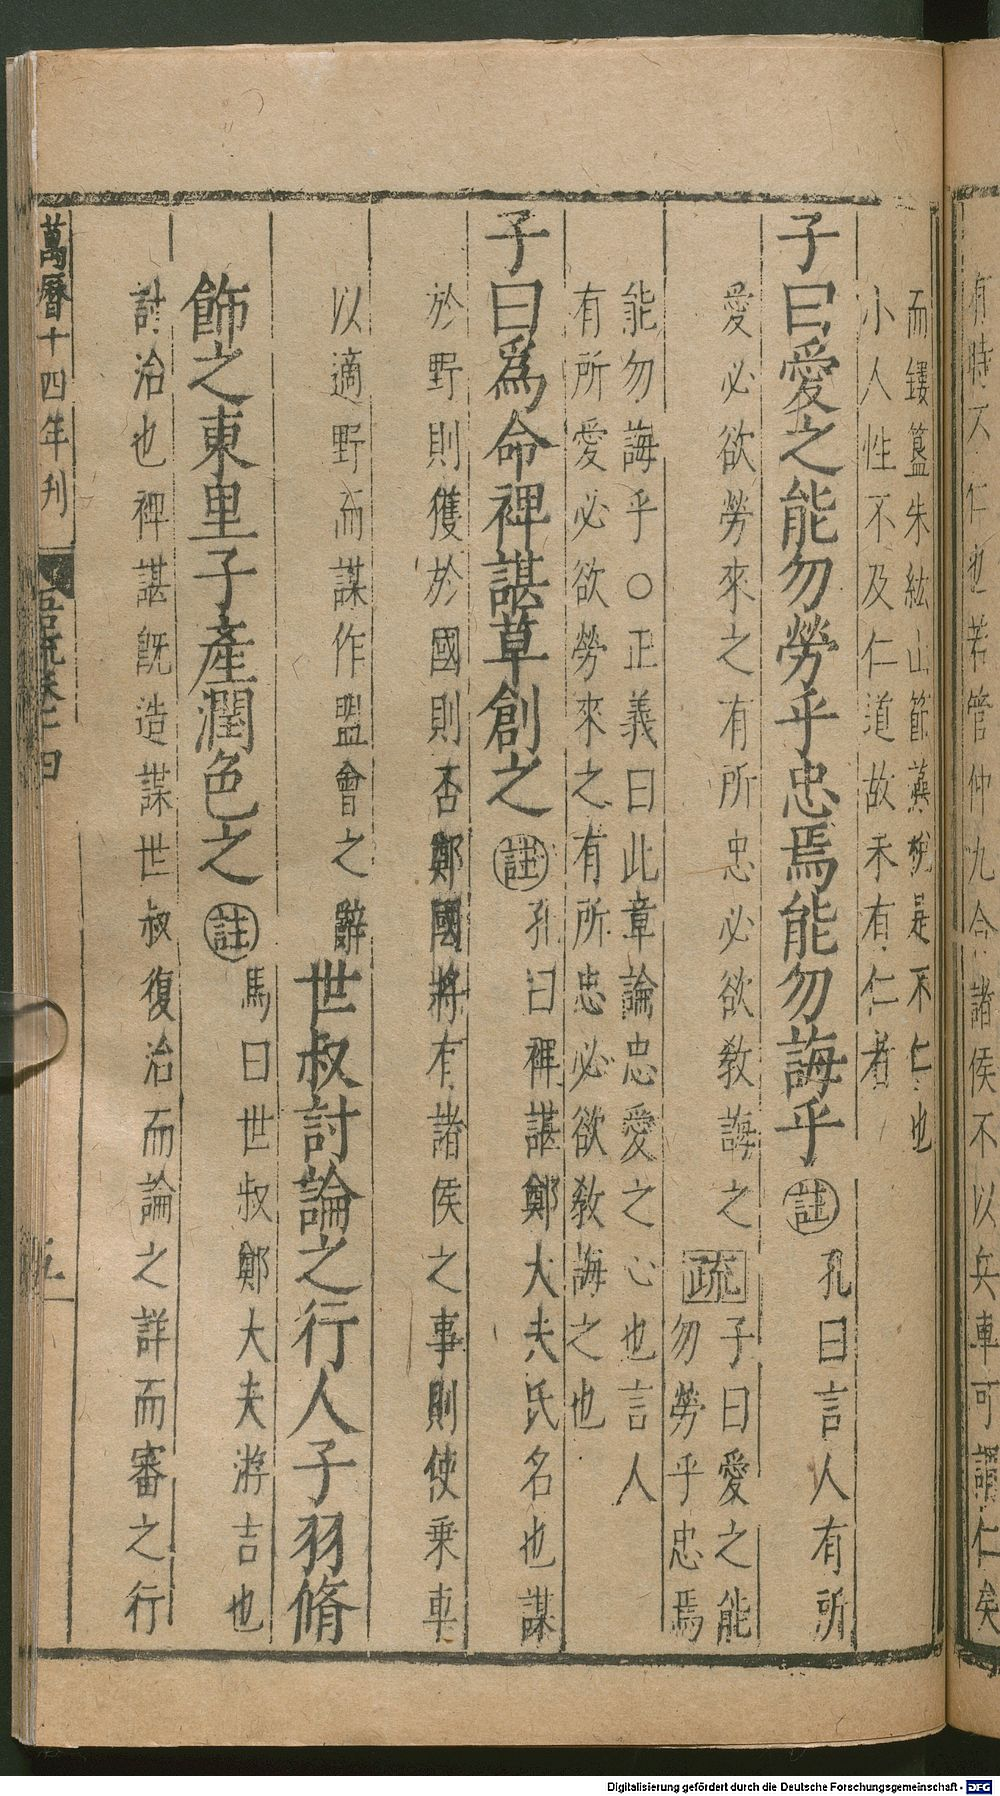 有時不仁也若管仲九合諸侯不以兵車可謂仁矣
而鏤簋朱紘山節藻梲是不仁也
小人性不及仁道故未有仁者
子曰愛之能勿勞乎忠焉能勿誨乎註孔曰言人有所
愛必欲勞來之有所忠必欲教誨之疏子曰愛之能
勿勞乎忠焉
能勿誨乎○正義曰此章論忠愛之心也言人
有所愛必欲勞來之有所忠必欲教誨之也
子曰為命裨諶草創之註孔曰裨諶鄭大夫氏名也謀
於野則獲於國則否鄭國將有諸侯之事則使乗車
以適野而謀作盟會之辭世叔討論之行人子羽脩
飾之東里子產潤色之註馬曰世叔鄭大夫游吉也
討治也裨諶既造謀世叔復治而論之詳而審之行
萬曆十四年刊
語疏卷十四
五
Digitalisierung gefördert durch die Deutsche Forschungsgemeinschaft - DFG